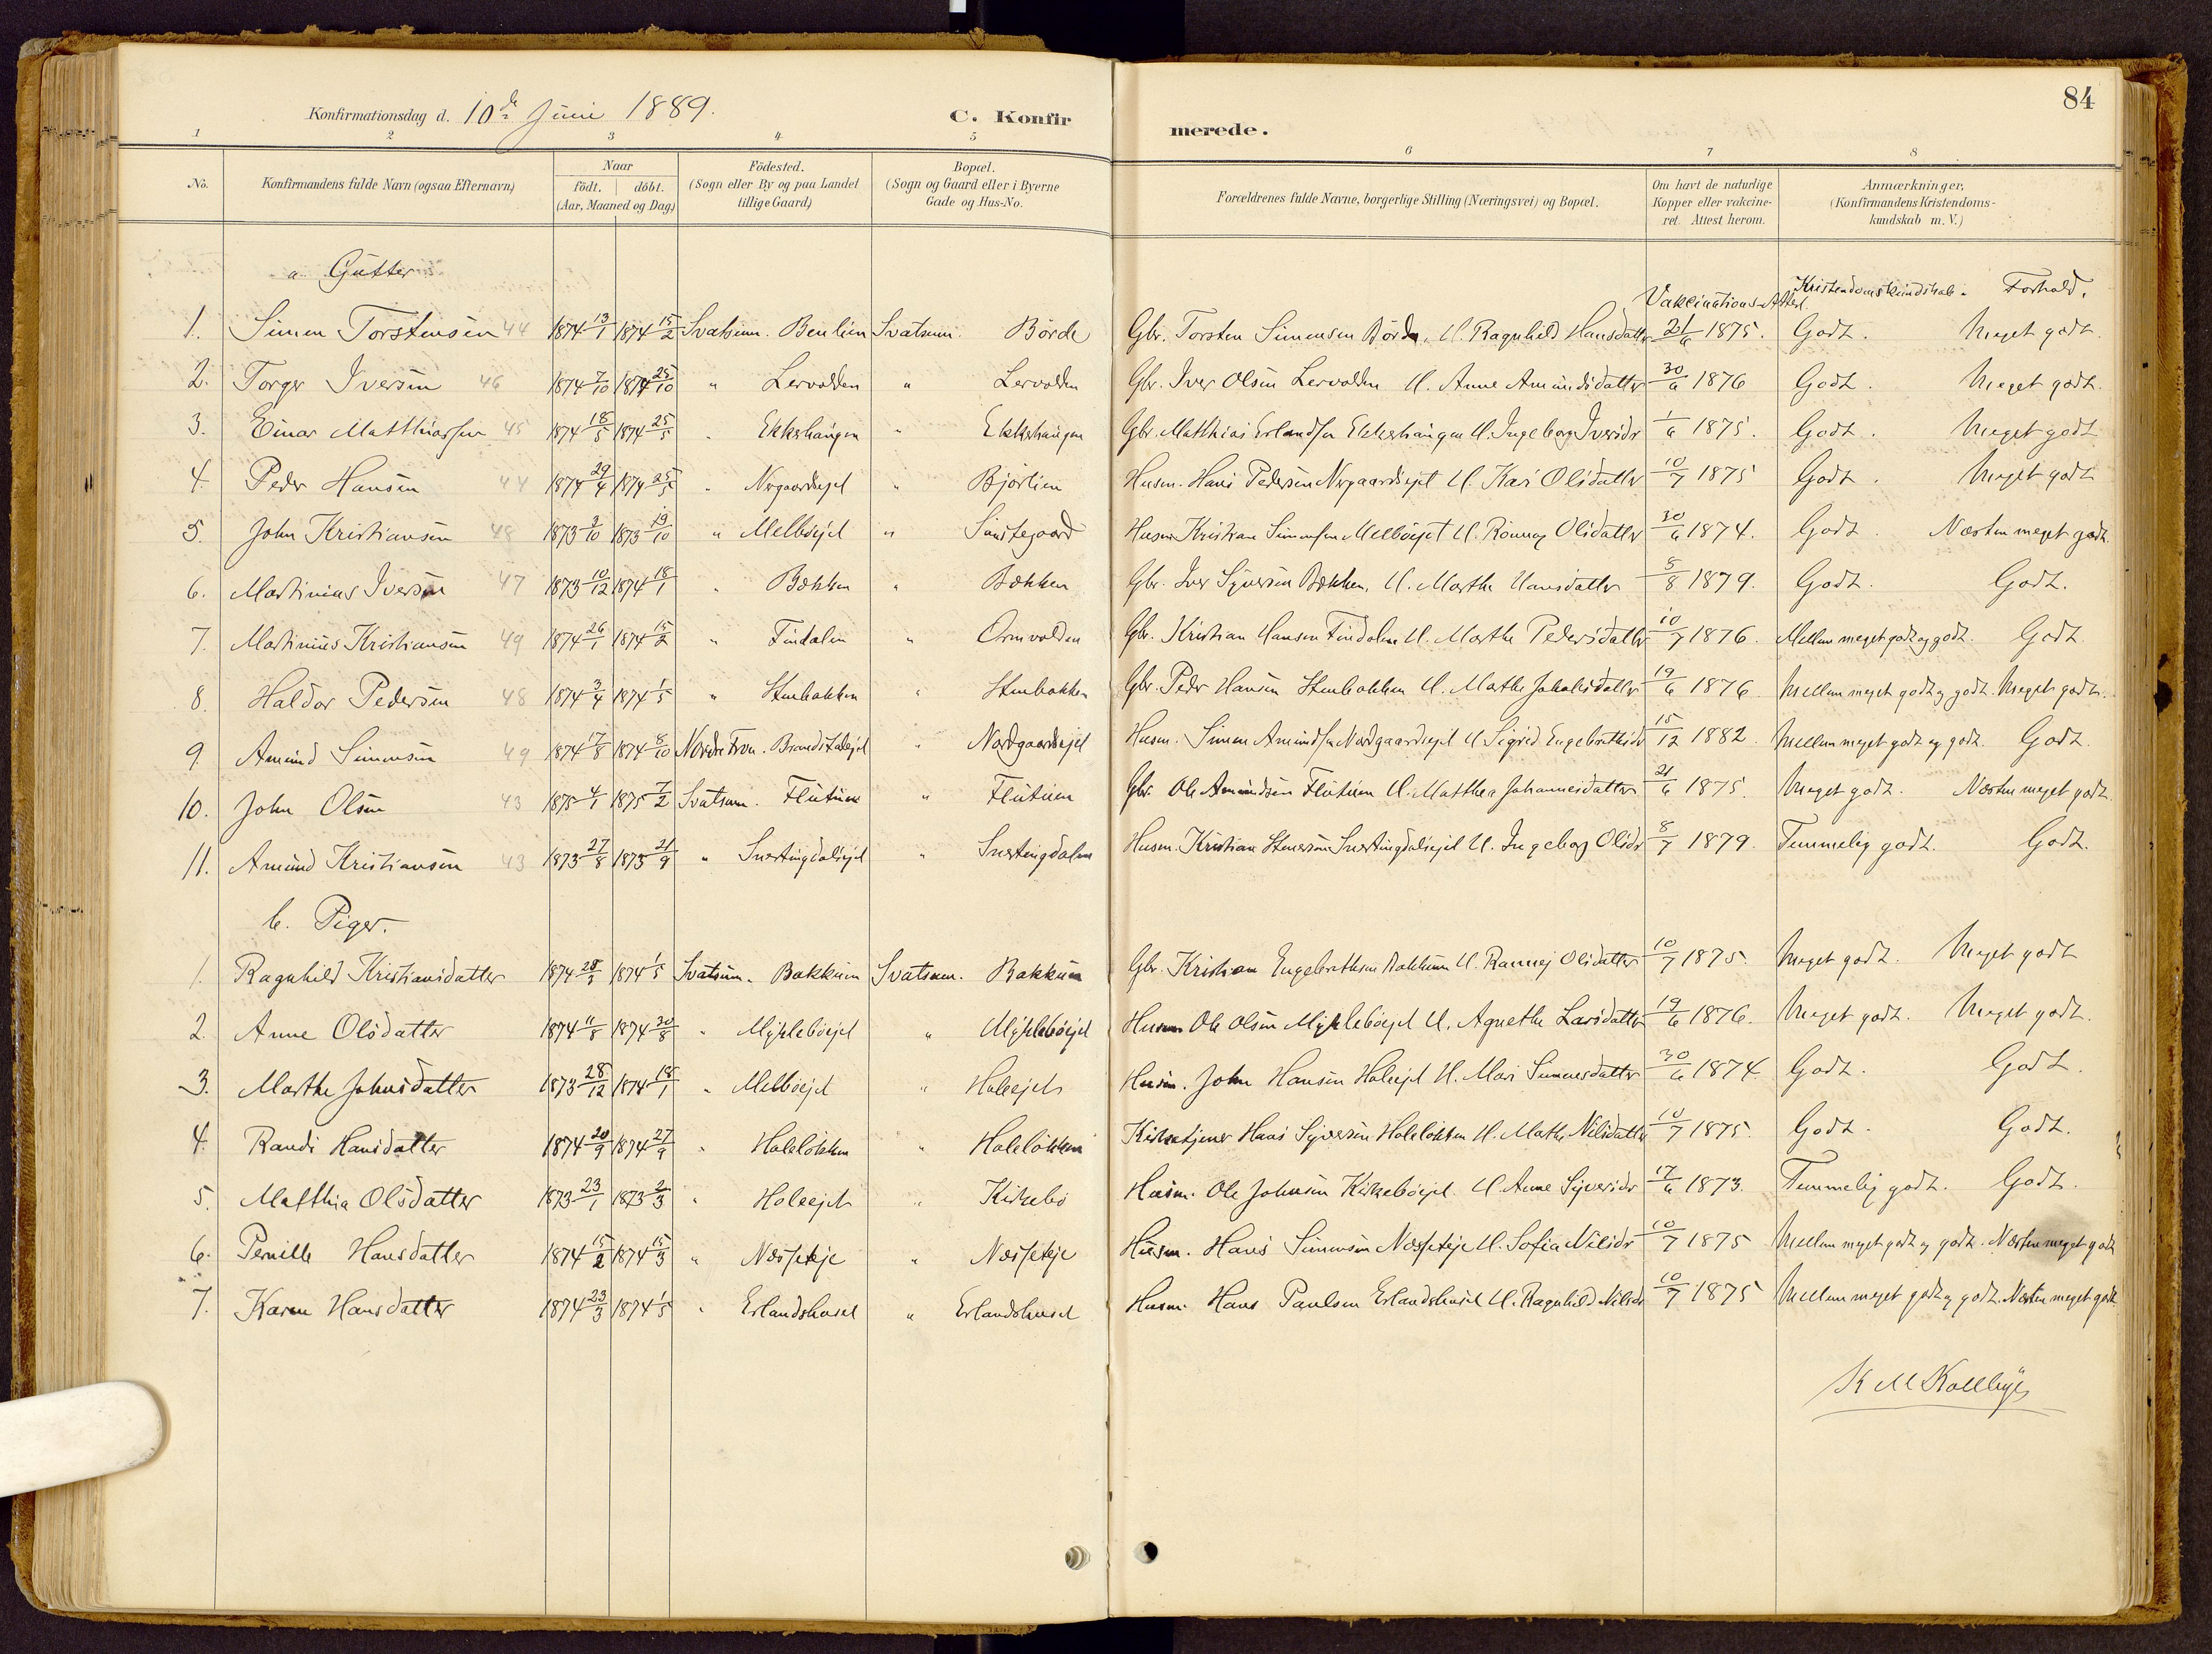 84
Konfirmationsdag d. 10de Juni 1889. C. Konfirmerede.
1 2 3 4 5 6 7 8
No. Konfirmandens fulde Navn (ogsaa Efternavn) Naar födt. döbt. (Aar, Maaned og Dag) Födested. (Sogn eller By og paa Landet tillige Gaard) Bopæl. (Sogn og Gaard eller i Byerne Gade og Hus-No. Forældrenes fulde Navne, borgerlige Stilling (Næringsvei) og Bopæl. Om havt de naturlige Kopper eller vakcineret. Attest herom. Anmærkninger, (Konfirmandens Kristendomskundskab m. V.)
a. Gutter
Vakcinations-Attest Kristendomskundskab. Forhold.
1. Simen Torstensen 44 1874 13/1 1874 15/2 Svatsum. Benlien Svatsum. Börde Gbr. Torsten Simensen Börde. H. Ragnhild Hansdatter 21/6 1875. Godt. Meget godt.
2. Torger Iversen 46 1874 7/10 1874 25/10 " Lervolden " Lervolden Gbr. Iver Olsen Lervolden H. Anne Amundsdatter 30/6 1876 Godt. Meget godt.
3. Einar Matthiassen 45 1874 18/5 1874 25/5 " Ekkshaugen " Ekkshaugen Gbr. Matthias Erlandsen Ekkshaugen H. Ingeborg Iversdr 1/6 1875. Godt. Meget godt
4. Peder Hansen 44 1874 29/4 1874 25/5 " Nergaardsejet " Björlien Husm. Hans Pedersen Nergaardsejet H. Kari Olsdatter 10/7 1875 Godt. Meget godt
5. John Kristiansen 48 1873 3/10 1873 19/10 " Melböejet " Sustegaard Husm. Kristian Simensen Melböejet H. Rönnog Olsdatter 30/6 1874. Godt. Næsten meget godt.
6. Martinius Iversen 47 1873 10/12 1874 18/1 " Bækken " Bækken Gbr. Iver Syversen Bækken. H. Marthe Hansdatter 5/8 1879. Godt. Godt.
7. Martinius Kristiansen 49 1874 26/1 1874 15/2 " Findalen " Ormvolden Gbr. Kristian Hansen Findalen H. Marthe Pedersdatter 10/7 1876. Mellem meget godt og godt. Godt.
8. Haldor Pedersen 48 1874 3/4 1874 1/5 " Stenbakken " Stenbakken Gbr. Peder Hansen Stenbakken H. Marthe Jakobsdatter 19/6 1876 Mellem meget godt og godt. Meget godt.
9. Amund Simensen 49 1874 17/8 1874 8/10 Nordre Fron. Brandstadejet " Nordgaardsejet Husm. Simen Amundsen Nordgaardsejet H. Sigrid Engebrethsdr 15/12 1882. Mellem meget godt og godt. Godt.
10. John Olsen 43 1875 4/1 1875 7/2 Svatsum. Flutuen " Flutuen Gbr. Ole Amundsen Flutuen H. Matthea Johannesdatter 21/6 1875. Meget godt. Næsten meget godt
11. Amund Kristiansen 43 1873 27/8 1873 21/9 " Snertingdalsejet " Snertingdalen Husm. Kristian Stenersen Snertingdalsejet H. Ingeborg Olsdr 8/7 1879. Temmelig godt. Godt.
b. Piger.
1. Ragnhild Kristiansdatter 1874 28/3 1874 1/5 Svatsum. Bakkum Svatsum. Bakkum Gbr. Kristian Engebrethsen Bakkum H. Rannej Olsdatter 10/7 1875. Meget godt. Meget godt
2. Anne Olsdatter 1874 11/8 1874 30/8 " Mykleböejet " Mykleböejet Husm. Ole Olsen Mykleböejet H. Agnethe Larsdatter 19/6 1876. Meget godt. Meget godt.
3. Marthe Johnsdatter 1873 28/12 1874 18/1 " Melböejet " Holeejet Husm. John Hansen Holeejet H. Mari Simensdatter 30/6 1874 Godt. Godt.
4. Randi Hansdatter 1874 20/9 1874 27/9 " Holelökken " Holelökken Kirketjener Hans Syversen Holelökken H. Marthe Nilsdatter 10/7 1875. Godt. Godt.
5. Matthia Olsdatter 1873 23/1 1873 2/3 " Holeejet " Kirkebö Husm. Ole Johnsen Kirkeböejet. H. Anne Syversdr 17/6 1873. Temmelig godt. Godt.
6. Pernille Hansdatter 1874 15/2 1874 15/3 " Næsseteje " Næsseteje Husm. Hans Simensen Næsseteje H. Sofia Nilsdr 10/7 1875 Mellem meget godt og godt. Næsten meget godt
7. Karen Hansdatter 1874 23/3 1874 1/5 " Erlandshuset " Erlandshuset Husm. Hans Paulsen Erlandshuset H. Ragnhild Nilsdr 10/7 1875 Mellem meget godt og godt. Næsten meget godt
K M Kolbye